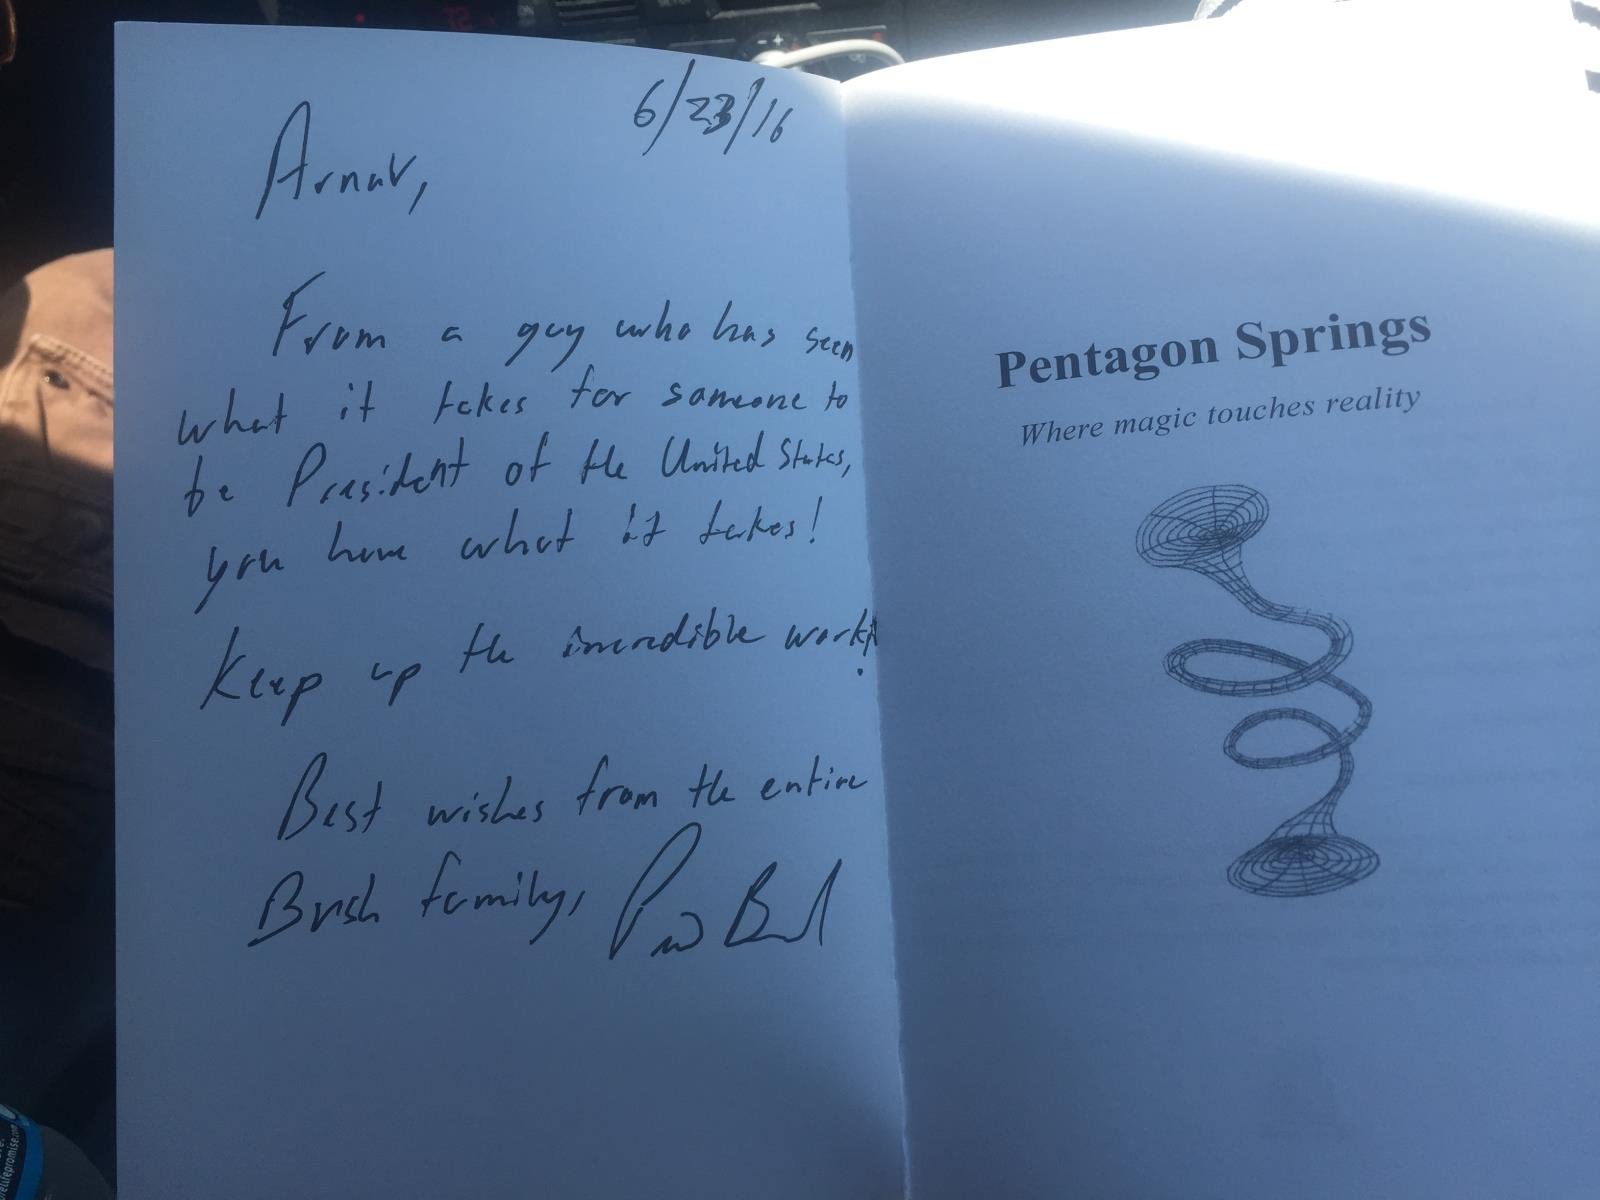 6/23/16
Arnav,
From a guy who has seen
what it takes for someone to
be President of the United States,
you have what it takes!
Keep up the incredible work!
Best wishes from the entire
Bush family,
Pentagon Springs
Where magic touches reality